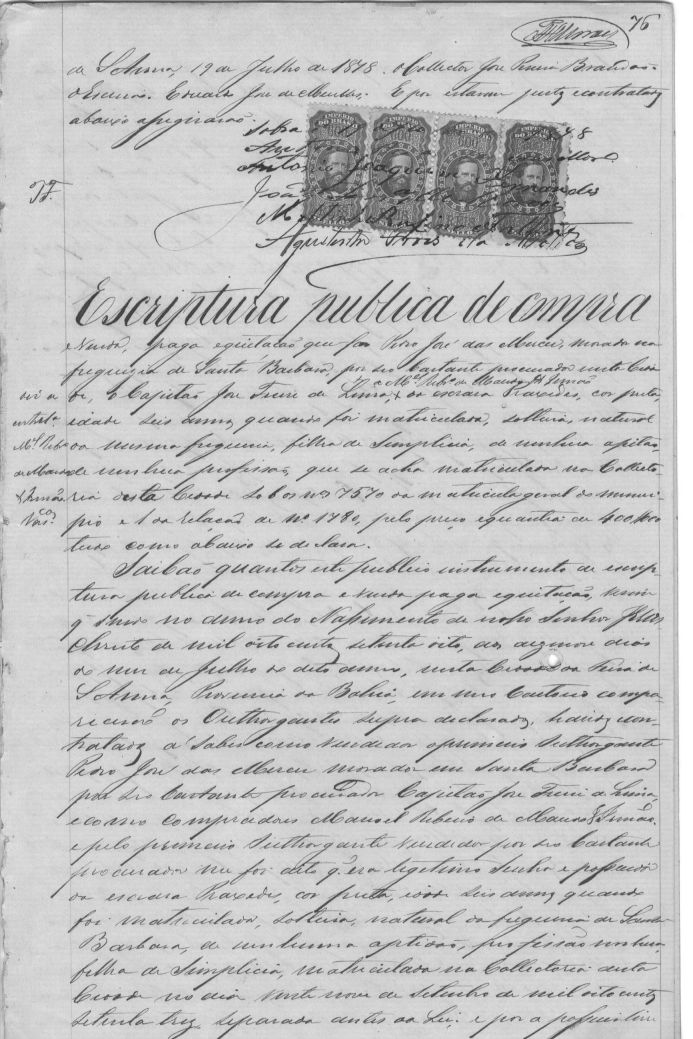 76
de S. Anna, 19 de Julho de 1878. O Collector Jose Brandão.
O Escrivão. Eduardo Jose de. E por estarem justos e contratados
abaixo assignarão.
IMPERIO DO BRAZIL IMPERIO DO BRAZIL IMPERIO DO BRAZIL IMPERIO DO BRAZIL
Antonio Joaquim
João
Escriptura publica de compra
e venda, paga e quitação que faz Pedro José das Mercês, morador na
freguezia de Santa Barbara, por seu bastante procurador nesta Cida
de, o Capitão Jose Freire de Lima, a Mel. Ribo. de Macedo & Irmão da escrava Praxedes, cor preta,
idade seis annos quando foi matriculada, solteira, natural
da mesma freguezia, filha de Simplicia, de nenhuma aptidão,
de nenhuma profissão, que se acha matriculada na Collecto
ria desta Cidade sob os nos 7570 da matricula geral do munici
pio e 1 da relação de no 1780, pelo preço e quantia de 400$000
tudo como abaixo se declara.
Saibão quantos este publico instrumento de escrip
tura publica de compra e venda paga e quitação, virem
q' sendo no anno do Nascimento de Nosso Senhor Jesus
Christo de mil oito centos setenta e oito, aos dezenove dias
do mez de Julho do dito anno, nesta Cidade da Feira de
S. Anna, Provincia da Bahia, em meu Cartorio compa
recerão os Outhorgantes supra declarados, havidos con
tratados a saber como vendedor o primeiro Outhorgante
Pedro Jose das Mercês morador em Santa Barbara
por seu bastante procurador Capitão Jose Freire de Lima,
e como compradores Manoel Ribeiro de Macedo & Irmão.
e pelo primeiro Outhorgante vendedor por seu bastante
procurador me foi dito q' era legitimo senhor e possuidor
da escrava Praxedes, cor preta, idade seis annos quando
foi matriculada, solteira, natural da freguezia de Santa
Barbara, de nenhuma aptidão, profissão nenhuma
filha de Simplicia, matriculada na Collectoria desta
Cidade no dia vinte nove de Setembro de mil oito centos
setenta e trez, separada antes da Lei; e por a possuir livre